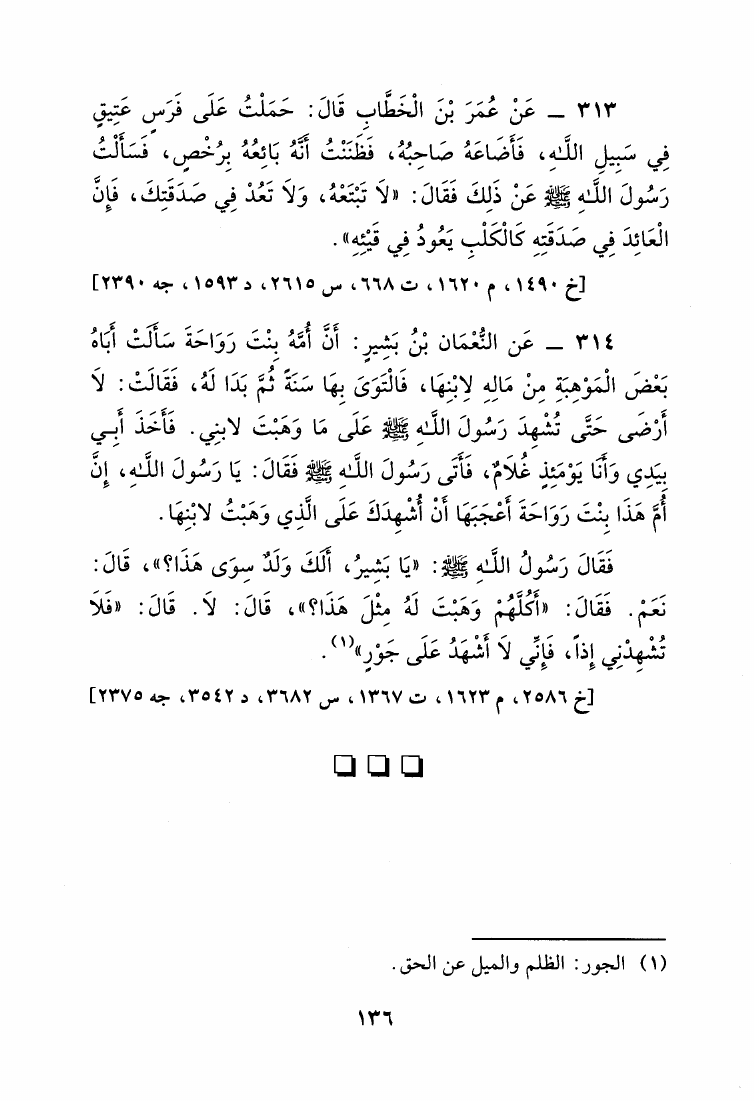 ٣١٣ ـ عَنْ عُمَرَ بْنَ الْخَطَّابِ قَالَ: حَمَلْتُ عَلَى فَرَسٍ عَتِيقٍ
فِي سَبِيلِ اللَّهِ، فَأَضَاعَهُ صَاحِبُهُ، فَظَنَنْتُ أَنَّهُ بَائِعُهُ بِرُخْصٍ، فَسَأَلْتُ
رَسُولَ اللَّهِ ﷺ عَنْ ذَلِكَ فَقَالَ: «لَا تَبْتَعْهُ، وَلَا تَعُدْ فِي صَدَقَتِكَ، فَإِنَّ
الْعَائِدَ فِي صَدَقَتِهِ كَالْكَلْبِ يَعُودُ فِي قَيْئِهِ».
[خ ١٤٩٠، م ١٦٢٠، ت ٦٦٨، س ٢٦١٥، د ١٥٩٣، جه ٢٣٩٠]
٣١٤ ـ عَن النُّعْمَان بْنُ بَشِيرٍ: أَنَّ أُمَّهُ بِنْتَ رَوَاحَةَ سَأَلَتْ أَبَاهُ
بَعْضَ الْمَوْهِبَةِ مِنْ مَالِهِ لِابْنِهَا، فَالْتَوَى بِهَا سَنَةً ثُمَّ بَدَا لَهُ، فَقَالَتْ: لَا
أَرْضَى حَتَّى تُشْهِدَ رَسُولَ اللَّهِ ﷺ عَلَى مَا وَهَبْتَ لابنِي. فَأَخَذَ أَبِي
بِيَدِي وَأَنَا يَوْمَئِذٍ غُلَامٌ، فَأَتَى رَسُولَ اللَّهِ ﷺ فَقَالَ: يَا رَسُولَ اللَّهِ، إِنَّ
أُمَّ هَذَا بِنْتَ رَوَاحَةَ أَعْجَبَهَا أَنْ أُشْهِدَكَ عَلَى الَّذِي وَهَبْتُ لابْنِهَا.
فَقَالَ رَسُولُ اللَّهِ ﷺ: «يَا بَشِيرُ، أَلَكَ وَلَدٌ سِوَى هَذَا؟»، قَالَ:
نَعَمْ. فَقَالَ: «أَكُلَّهُمْ وَهَبْتَ لَهُ مِثْلَ هَذَا؟»، قَالَ: لَا. قَالَ: «فَلَا
تُشْهِدْنِي إِذاً، فَإِنِّي لَا أَشْهَدُ عَلَى جَوْرٍ»(١).
[خ ٢٥٨٦، م ١٦٢٣، ت ١٣٦٧، س ٣٦٨٢، د ٣٥٤٢، جه ٢٣٧٥]
(١) الجور: الظلم والميل عن الحق.
١٣٦